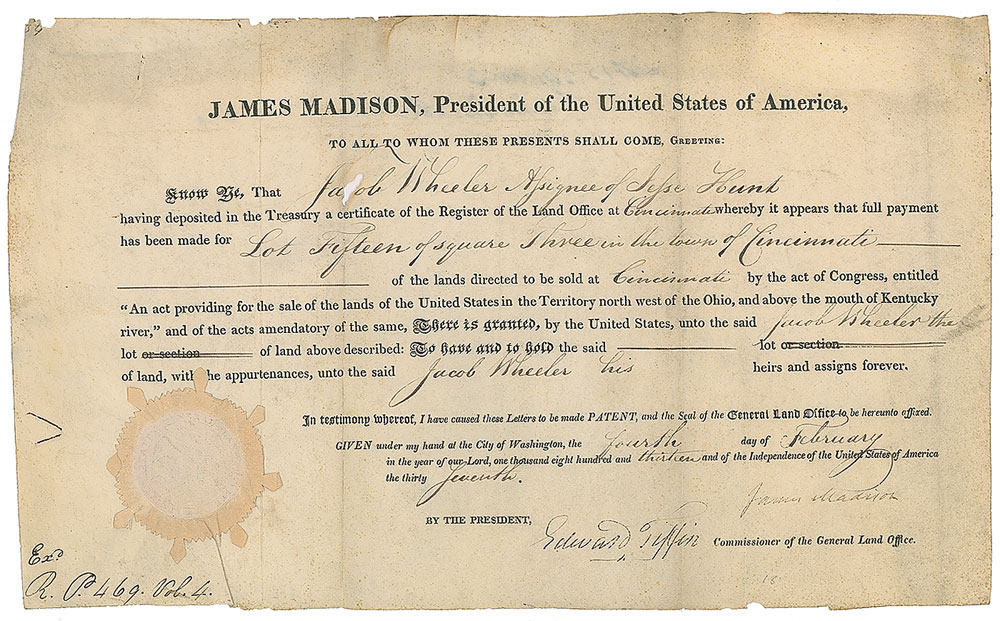 JAMES MADISON, President of the United States of America,
TO ALL TO WHOM THESE PRESENTS SHALL COME, GREETING:
Know Ye, That Jacob Wheeler Assignee of Jesse Hunt
having deposited in the Treasury a certificate of the Register of the Land Office at Cincinnati whereby it appears that full payment
has been made for Lot Fifteen of square Three in the town of Cincinnati
of the lands directed to be sold at Cincinnati by the act of Congress, entitled
“An act providing for the sale of the lands of the United States in the Territory north west of the Ohio, and above the mouth of Kentucky
river,” and of the acts amendatory of the same, There is granted, by the United States, unto the said Jacob Wheeler the
lot or section of land above described: To have and to hold the said lot or section
of land, with the appurtenances, unto the said Jacob Wheeler his heirs and assigns forever.
In testimony whereof, I have caused these Letters to be made PATENT, and the Seal of the General Land Office to be hereunto affixed.
GIVEN under my hand at the City of Washington, the fourth day of February
in the year of our Lord, one thousand eight hundred and thirteen and of the Independence of the United States of America
the thirty seventh.
James Madison
BY THE PRESIDENT,
Edward Tiffin Commissioner of the General Land Office.
Exd
R. P. 469. Vol. 4.